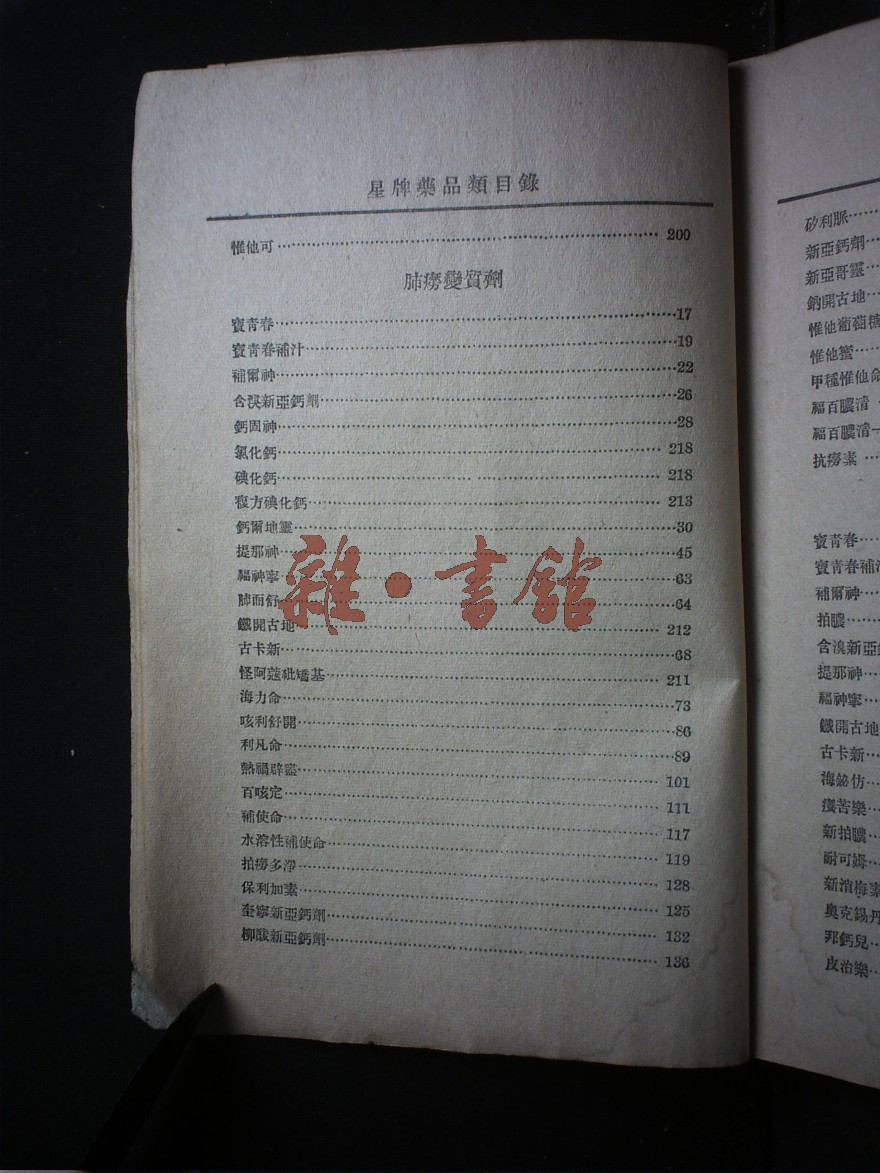 星牌藥品類目錄
惟他可 200
肺癆變質劑
寶青春 17
寶青春補汁 19
補爾神 22
含溴新亞鈣劑 26
鈣固神 28
氯化鈣 218
碘化鈣 218
複方碘化鈣 213
鈣爾地靈 30
提那神 45
福神寧 63
肺而舒 64
鐵開古地 212
古卡新 68
怪阿蔻枇 基 211
海力命 73
咳利舒開 86
利凡命 89
熱福辟靈 101
百咳定 111
補使命 117
水溶性補使命 119
拍癆多淨 128
保利加素 125
奎寧新亞鈣劑 132
柳酸新亞鈣劑 136
雜·書館
矽利脈
新亞鈣劑
新亞哥靈
鈉開古地
惟他葡萄糖
惟他蜜
甲種惟他命
福百膿清
福百膿清
抗癆素
寶青春
寶青春補汁
補爾神
拍膿
含溴新亞
提那神
福神寧
鐵開古地
古卡新
海鉍仿
瘻苦樂
新拍膿
耐可姆
新消梅素
奧克錫丹
邪鈣兒
皮治樂